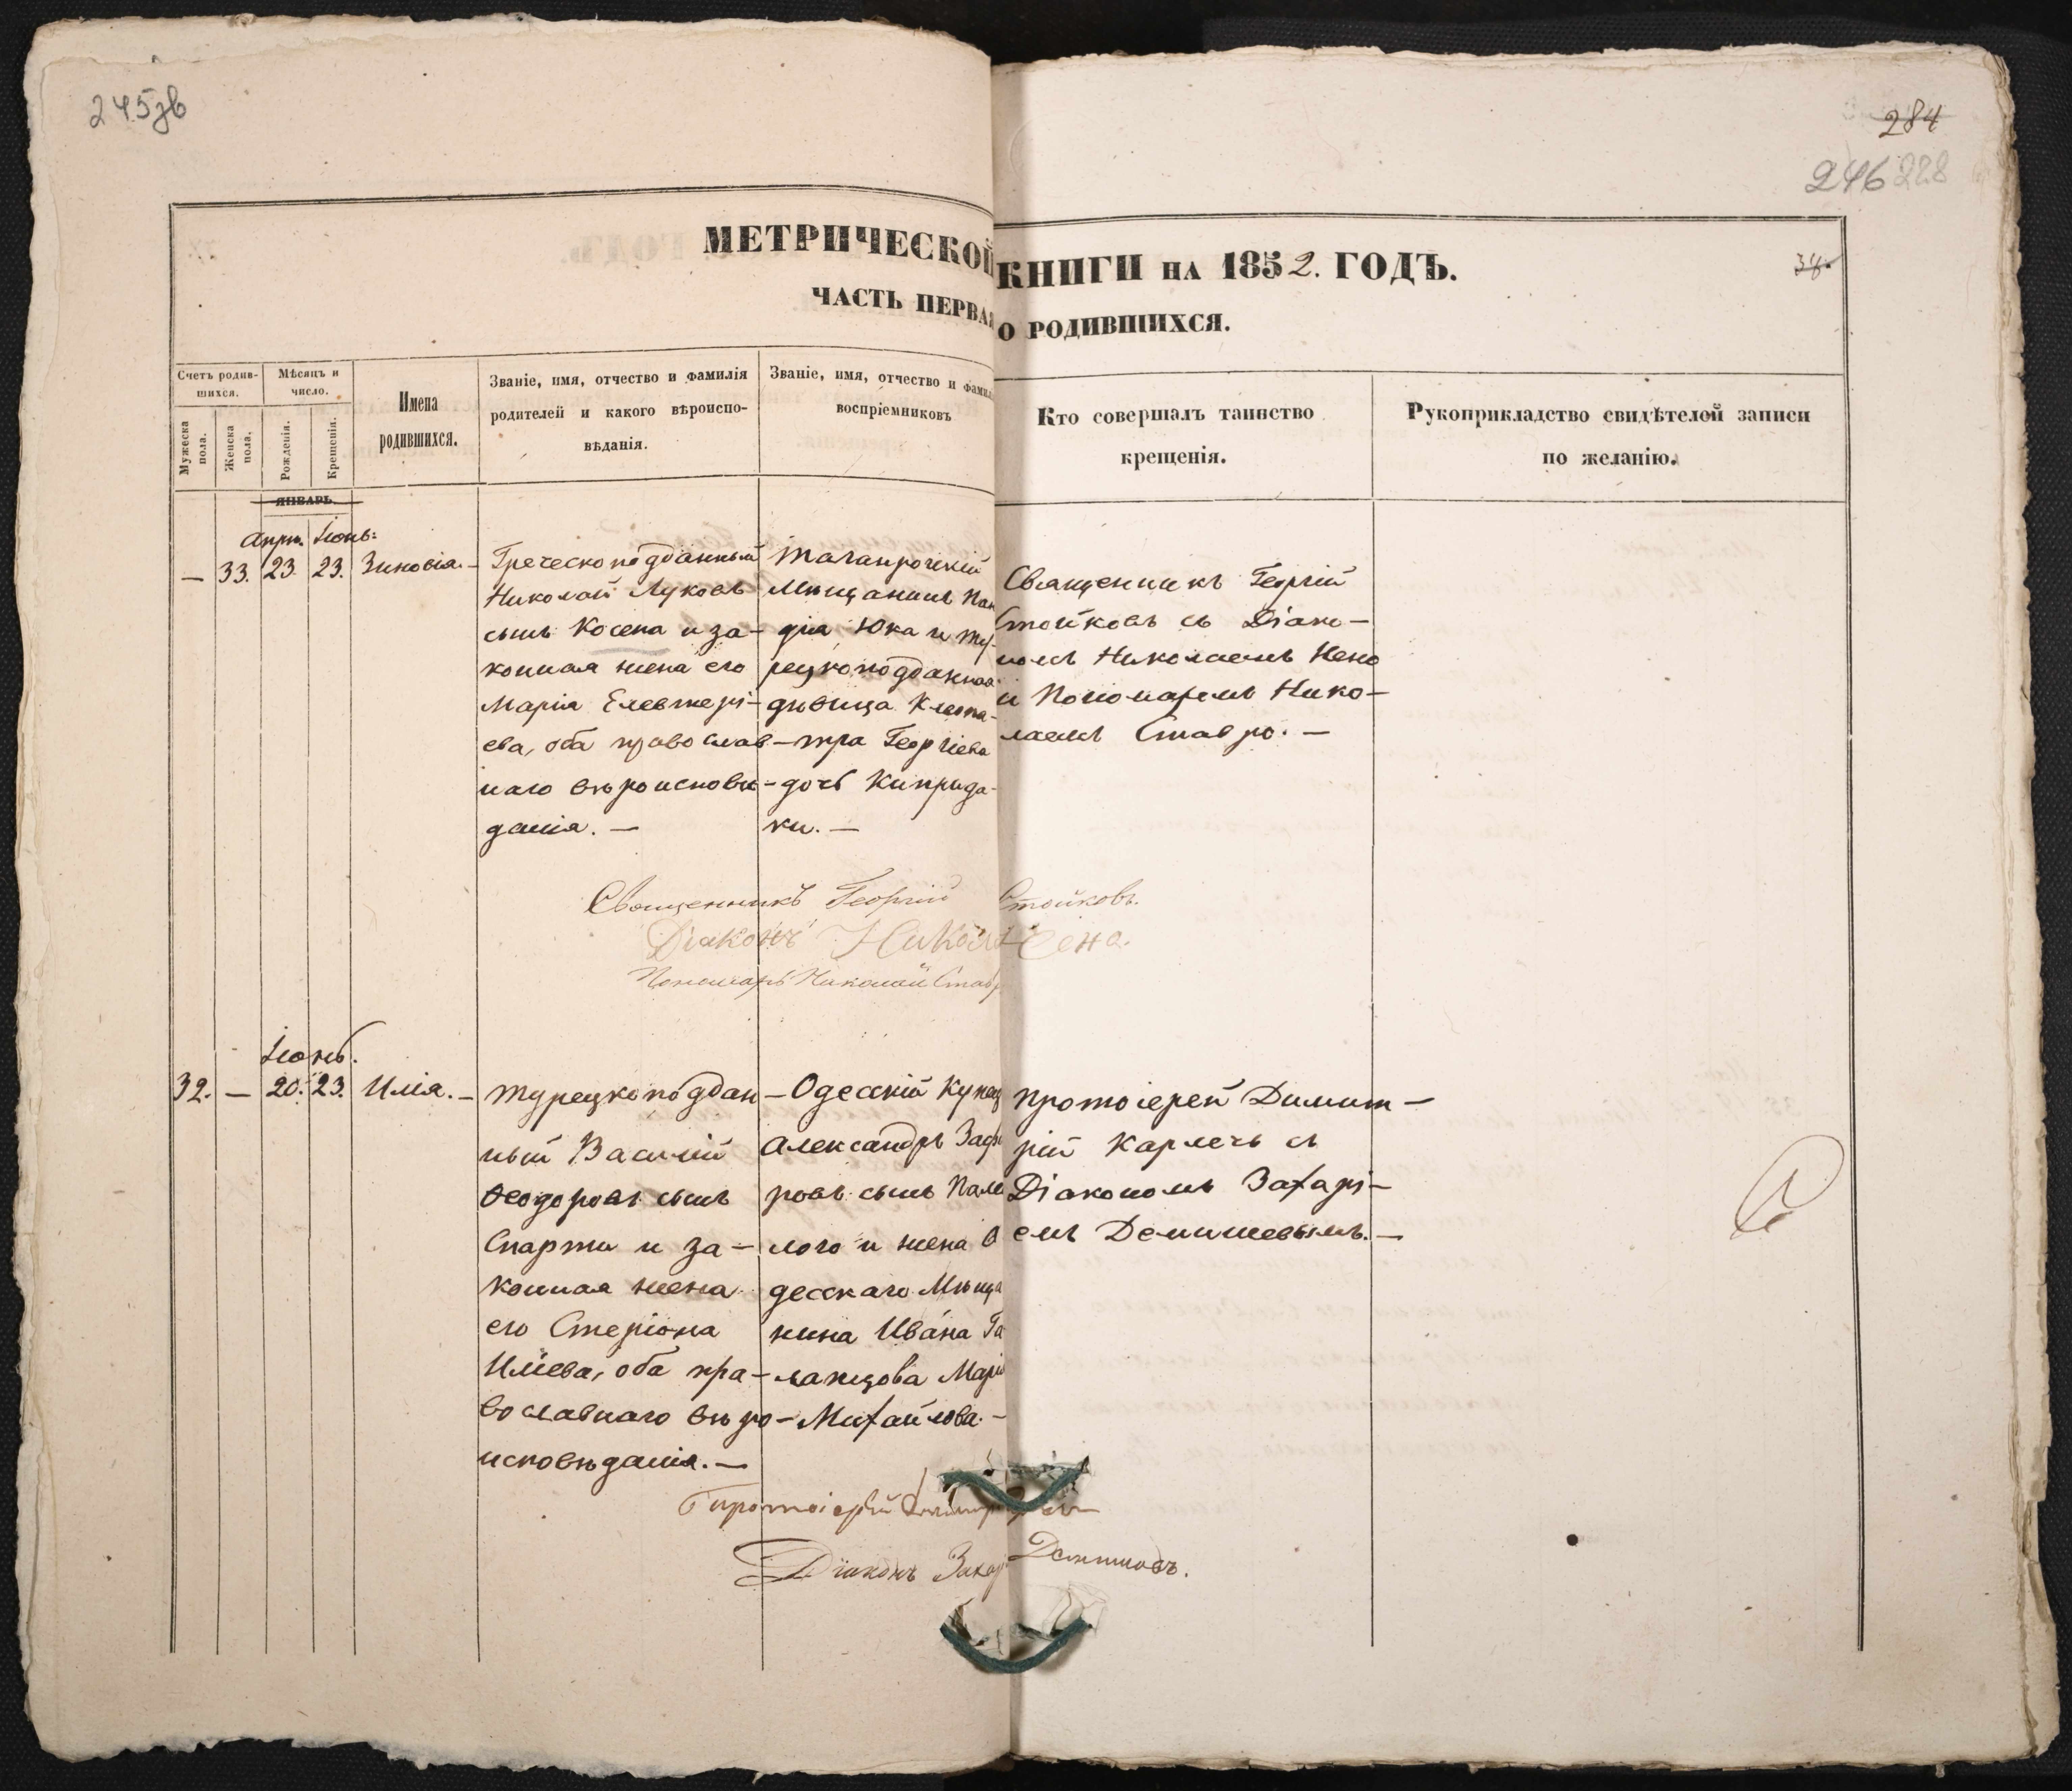 245зв
284
246 228
МЕТРИЧЕСКОЙ КНИГИ НА 1852. ГОДЪ.
34.
ЧАСТЬ ПЕРВАЯ О РОДИВШИХСЯ.
Счетъ родив-
шихся.
Мужеска
пола.
Женска
пола.
Мѣсяцъ и
число.
Рожденія.
Крещенія.
Имена
родившихся.
Званіе, имя, отчество и фамилія
родителей и какого вѣроиспо-
вѣданія.
Званіе, имя, отчество и фамил
воспріемниковъ
Кто совершалъ таинство
крещенія.
Рукоприкладство свидѣтелей записи
по желанію.
ЯНВАРЬ
Апрл. Іюнь:
— 33. 23. 23. Зиновія. —
Греческоподданный
Николай Луковъ
сынъ Косепа и за-
конная жена его
Марія Елевтері-
ева, оба православ-
наго вѣроисповѣ-
данія. —
Таганрогскій
Мѣщанинъ Пан
дія Юка и Ту-
рецкоподданная
дѣвица Клеопа-
тра Георгіева
дочь Киприда-
ки. —
Священникъ Георгій
Стойковъ съ Діако-
номъ Николаемъ Нено
и Пономаремъ Нико-
лаемъ Ставро. —
Священникъ Георгій Стойковъ.
Діаконъ Никол Нено.
Пономарь Николай Ставр
Іюнь.
32. — 20. 23. Илія. —
Турецкоподдан-
ный Василій
Ѳеодоровъ сынъ
Спарти и за-
конная жена
его Стеріона
Иліева, оба пра-
вославнаго вѣро-
исповѣданія. —
Одесскій Купец
Александръ Заф
ровъ сынъ Пале
лого и жена О
десскаго Мѣща
нина Ивана Га
ланцова Марія
Михайлова. —
Протоіерей Димит-
рій Карлечь съ
Діакономъ Захарі-
емъ Демишевымъ. —
Протоіерей Димитр
Діаконъ Захар Демишовъ.